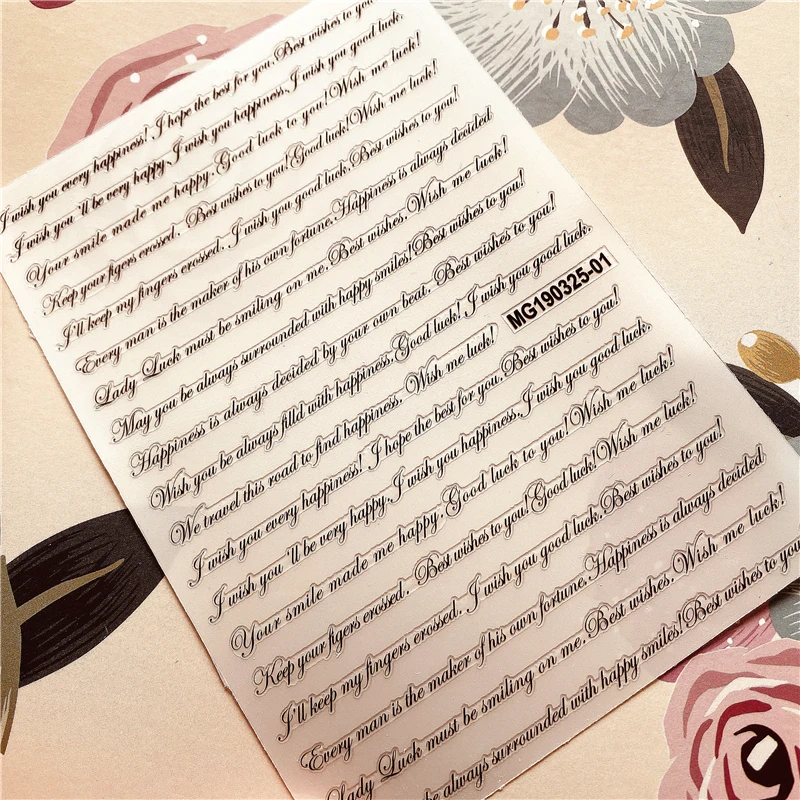 I wish you every happiness! I hope the best for you.Best wishes to you
I wish you 'll be very happy.I wish you happiness.I wish you good luck.
Your smile made me happy.Good luck to you!Wish me luck!
Keep your figers crossed. Best wishes to you!Good luck!Wish me luck!
I'll keep my fingers crossed. I wish you good luck.Best wishes to you!
Every man is the maker of his own fortune.Happiness is always decided
Lady Luck must be smiling on me. Best wishes.Wish me luck!
May you be always surrounded with happy smiles!Best wishes to you!
Happiness is always decided by your own beat. Best wishes to you!
Wish you be always filld with happiness.Good luck! I wish you good luck.
We travel this road to find happiness. Wish me luck!
MG190325-01
I wish you every happiness! I hope the best for you.Best wishes to you!
I wish you 'll be very happy.I wish you happiness.I wish you good luck.
Your smile made me happy.Good luck to you!Wish me luck!
Keep your figers crossed. Best wishes to you!Good luck!Wish me luck!
I'll keep my fingers crossed. I wish you good luck.Best wishes to you!
Every man is the maker of his own fortune.Happiness is always decided
Lady Luck must be smiling on me. Best wishes.Wish me luck!
be always surrounded with happy smiles!Best wishes to you